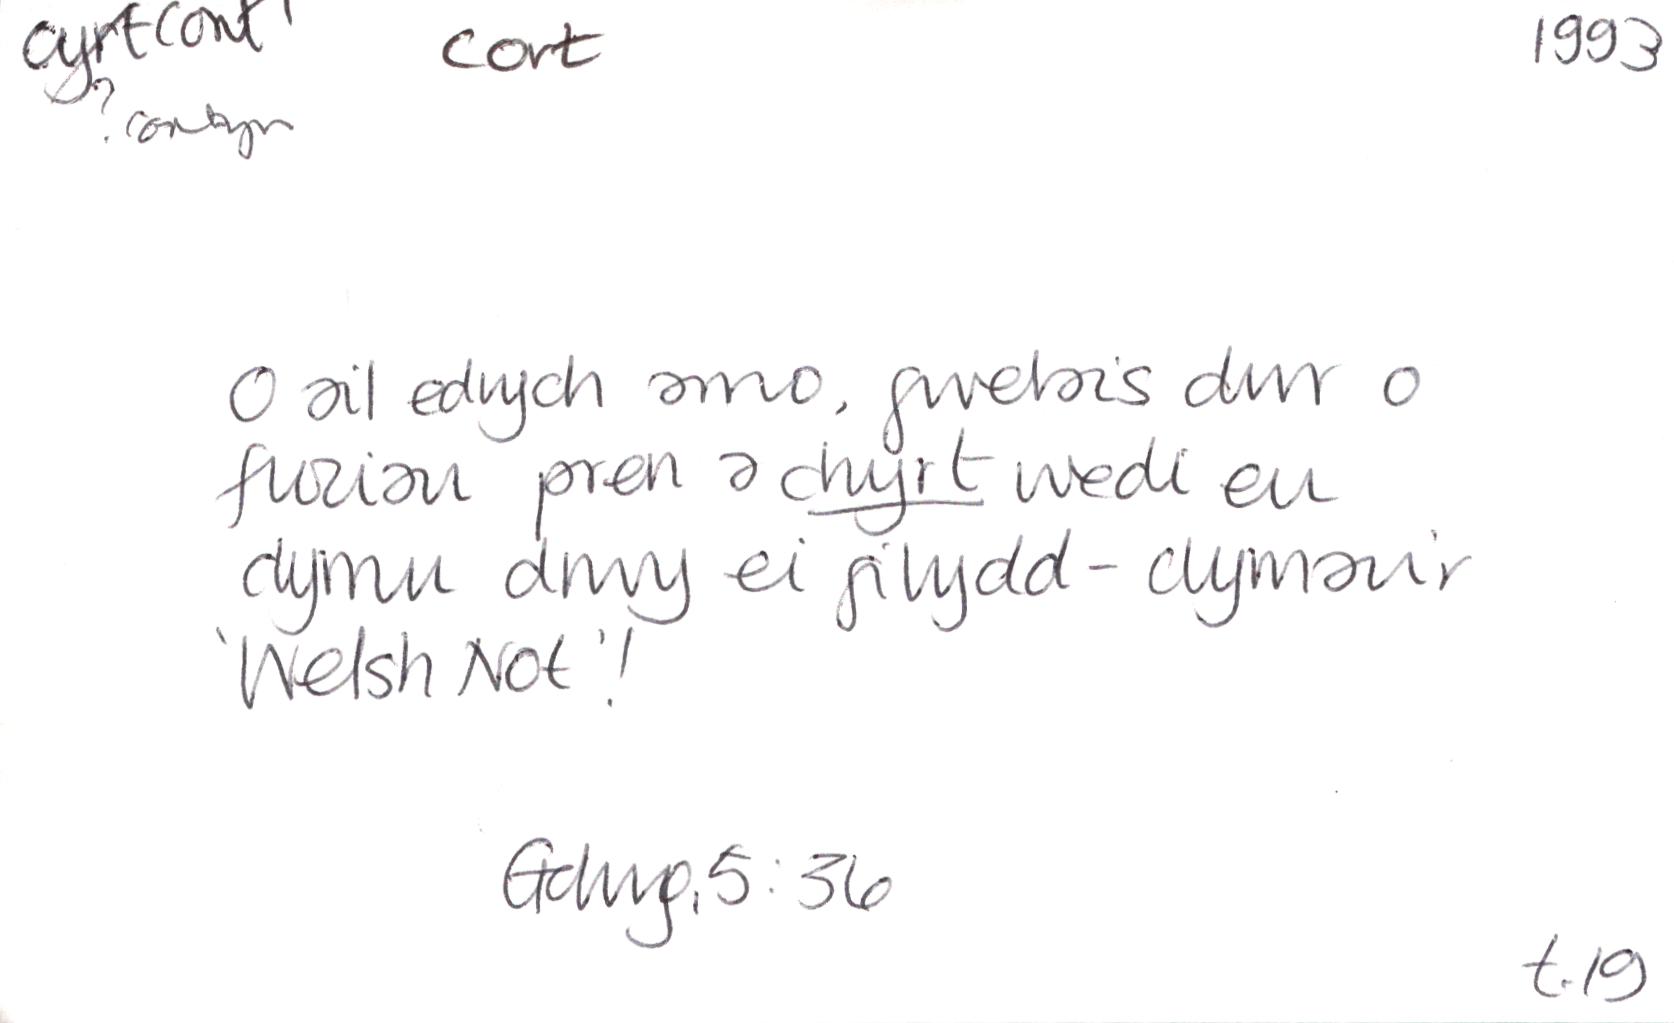 cyrt cort¹ cort 1993
? cortyn
O ail edrych arno, gwelais dwr o
furiau pren a chyrt wedi eu
clymu drwy ei gilydd - clymau'r
'Welsh Not'!
5:36
t.19